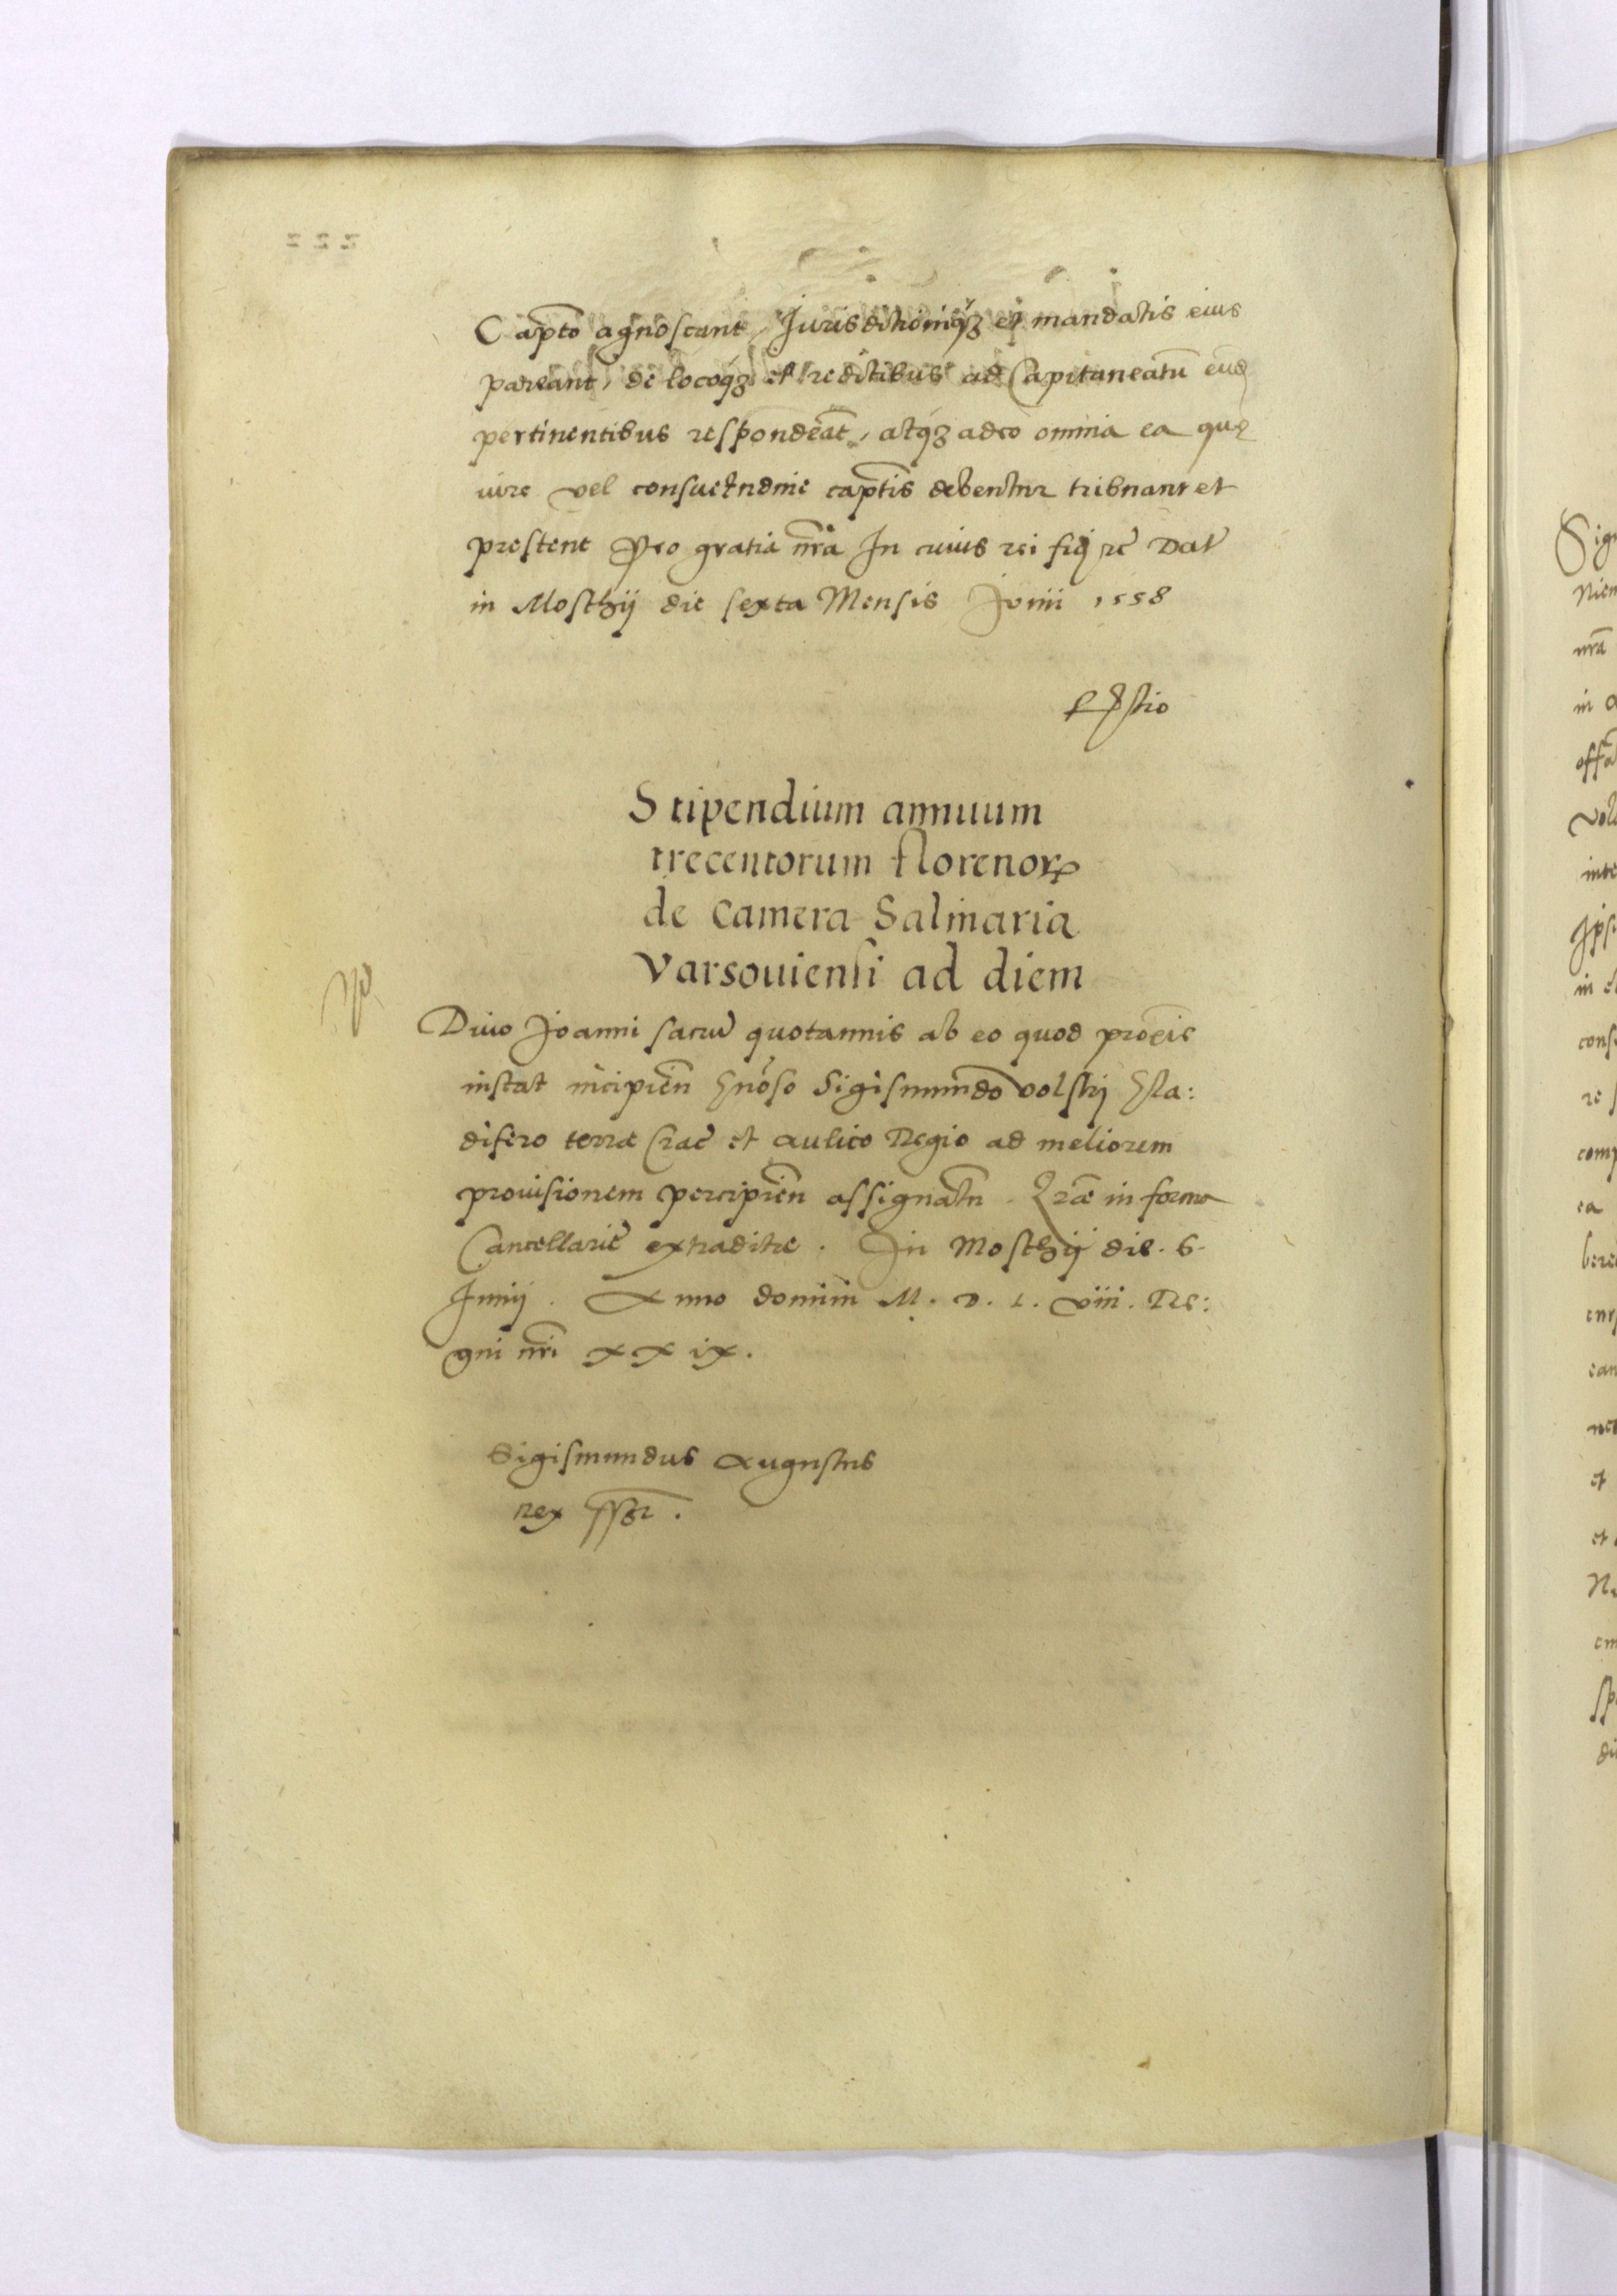 Capto agnoscant, Jurisditioniqȝ et mandatis eius
pareant, de locoqȝ et reditibus ad Capitaneatu eud
pertinentibus respondeat, atqȝ adeo omnia ea que
iure vel consuetudine captis debentur tribuant et
prestent Pro gratia nra In cuius rei fiḍ rc Dat
in Mosthÿ die sexta Mensis Junii 1558
Stipendium annuum
trecentorum florenorꝝ
de camera Salinaria
Varsouiensi ad diem
Diuo Joanni sacrū quotannis ab eo quod proxie
instat incipien Gnoso Sigismundo volskj Gla:
difero terræ Crac et aulico Regio ad meliorem
prouisionem percipien assignatu. Lræ in forma
Cancellarie extraditæ. In Mosthÿ die. 6.
Junij. Anno domini M. D. L. viii. Re:
gni nri xxix.
Sigismundus Augustus
rex sst.